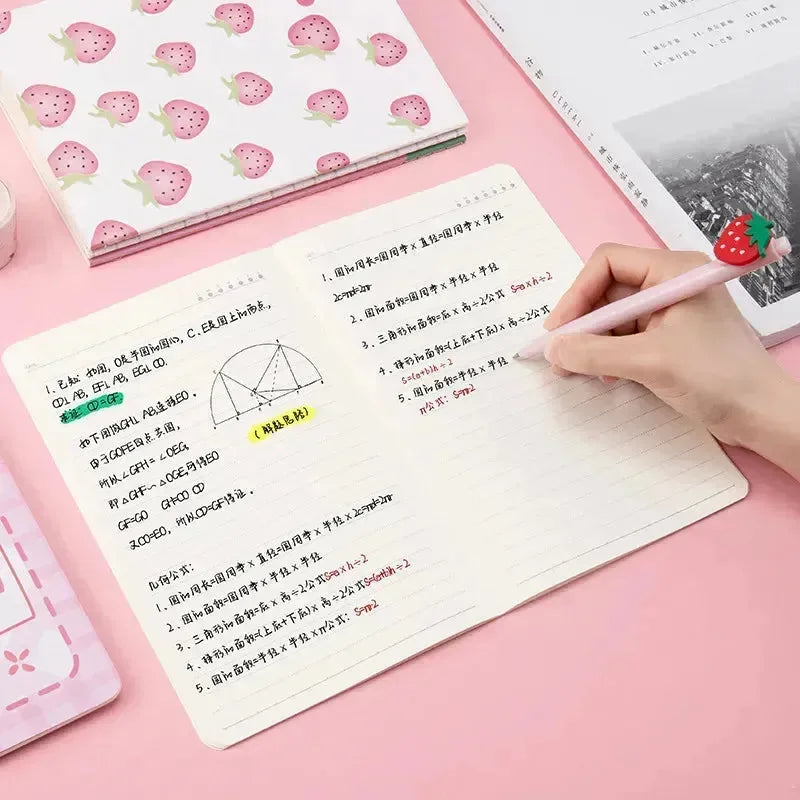 1、已知：如图，O是半圆的圆心，C、E是圆上的两点，
CD⊥AB, EF⊥AB, EG⊥CO.
求证：CD=GF.
(解题思路)
如下图做GH⊥AB,连接EO。
由于GOFE四点共圆，
所以∠GFH=∠OEG,
即△GHF∽△OGE,可得EO
GF=GO GH=CO CD
又CO=EO，所以CD=GF得证。
几何公式：
1、圆的周长=圆周率×直径=圆周率×半径×2c=πd=2πr
2、圆的面积=圆周率×半径×半径
3、三角形的面积=底×高÷2公式S=a×h÷2
4、梯形的面积=(上底+下底)×高÷2公式S=(a+b)h÷2
5、圆的面积=半径×半径×π公式：S=πr2
1、圆的周长=圆周率×直径=圆周率×半径
2c=πd=2πr
2、圆的面积=圆周率×半径×半径
3、三角形的面积=底×高÷2公式 S=a×h÷2
4、梯形的面积=(上底+下底)×高÷2公式
S=(a+b)h÷2
5、圆的面积=半径×半径
π公式：S=πr2
谷物 CEREAL